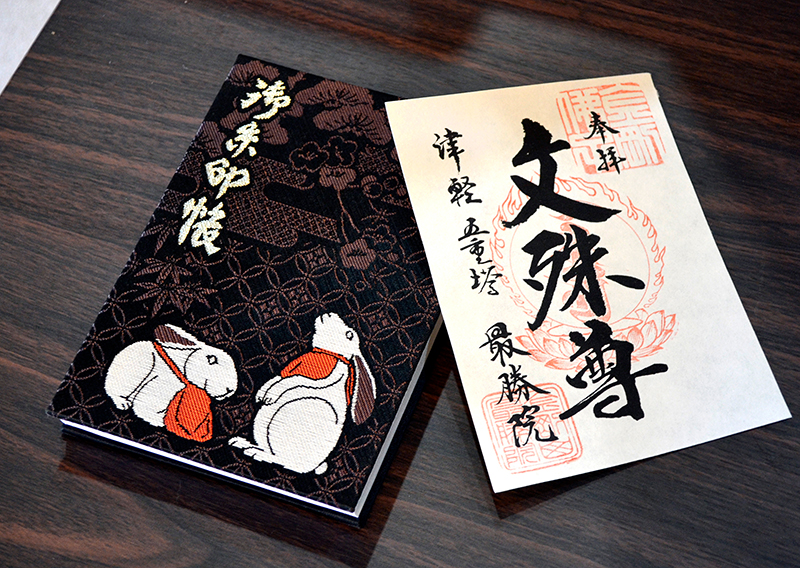 御朱印帳
奉拝
文殊尊
津軽 五重塔
最勝院